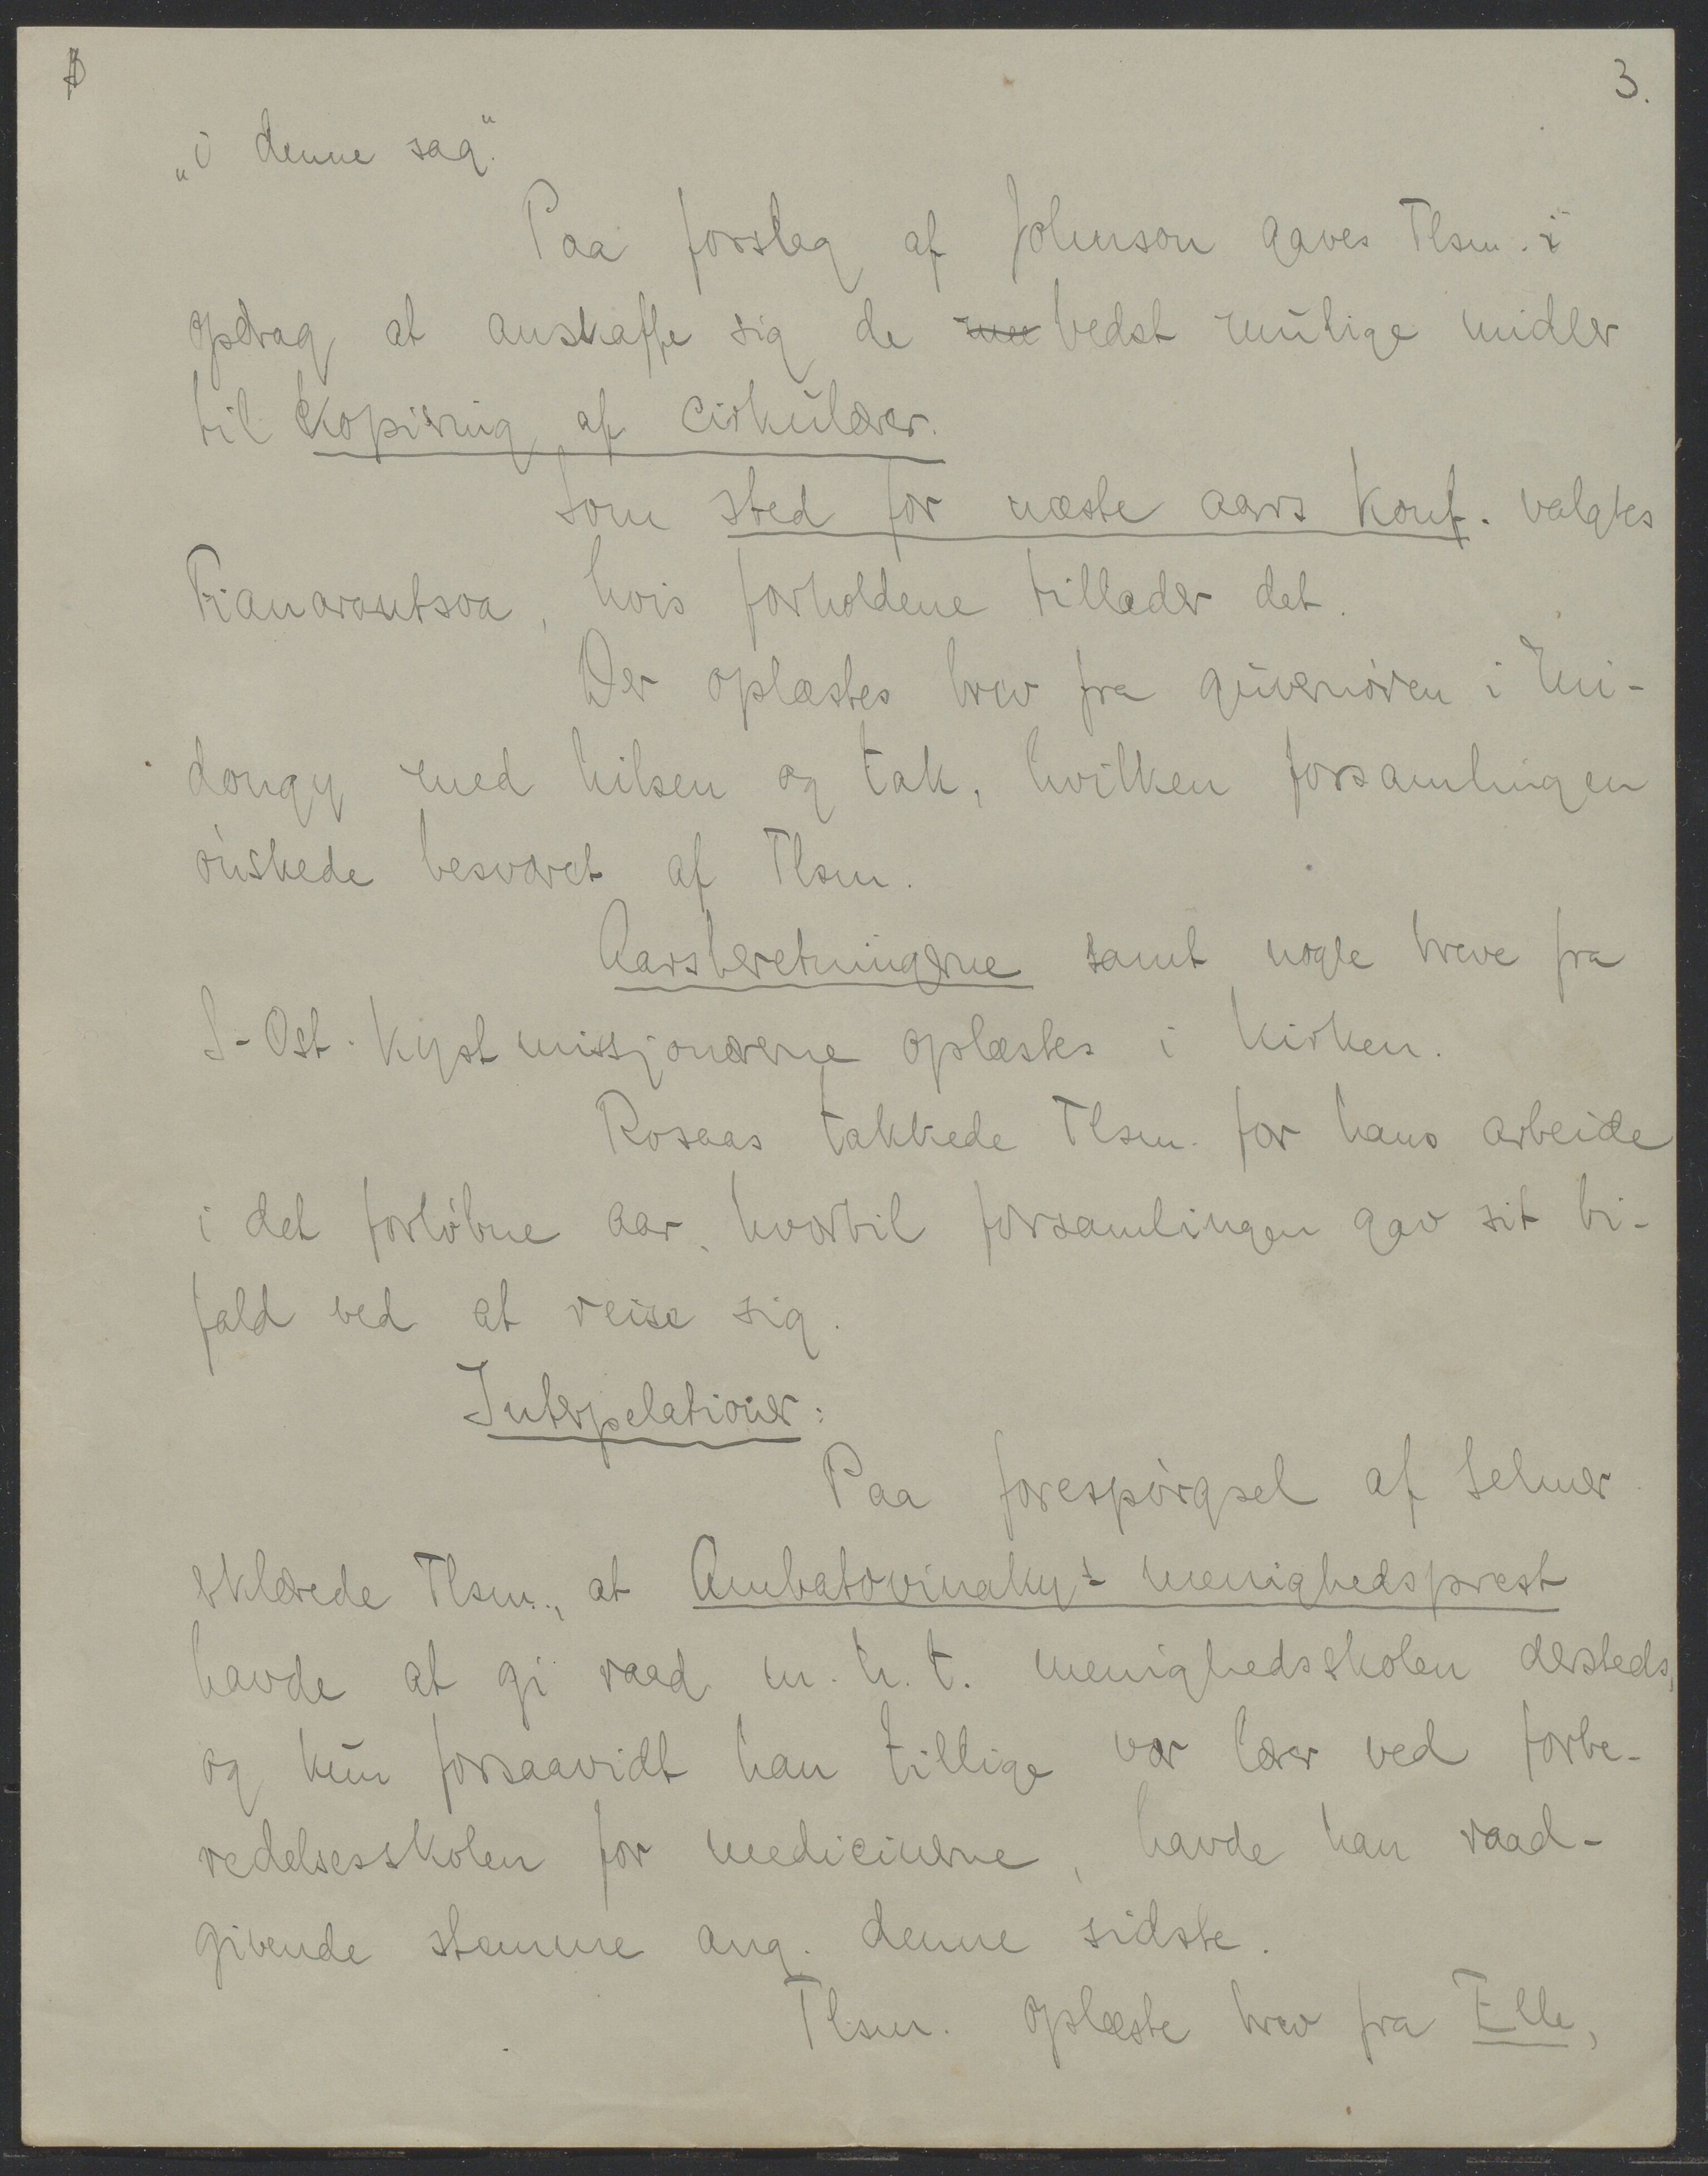 3.
„i denne sag."
Paa forslag af Johnson gaves Tlsm. i
opdrag at anskaffe sig de bedst mulige midler
til kopiering af cirkulærer.
Som sted for næste aars konf. valgtes
Fianarantsoa, hvis forholdene tillader det.
Der oplæstes brev fra guvernøren i Mi-
dongy med hilsen og tak, hvilken forsamlingen
ønskede besvaret af Tlsm.
Aarsberetningerne samt nogle breve fra
S-Øst. Kystmissjonærene oplæstes i kirken.
Rosaas takkede Tlsm. for hans arbeide
i det forløbne aar, hvortil forsamlingen gav sit bi-
fald ved at reise sig.
Interpelationer:
Paa forespørgsel af Selmer
erklærede Tlsm., at Ambatovinaky's menighedsprest
havde at gi raad m.h.t. menighedsskolen dersteds,
og kun forsaavidt han tillige var lærer ved forbe-
redelsesskolen for medicinerne, havde han raad-
givende stemme ang. denne sidste.
Tlsm. oplæste brev fra Elle,